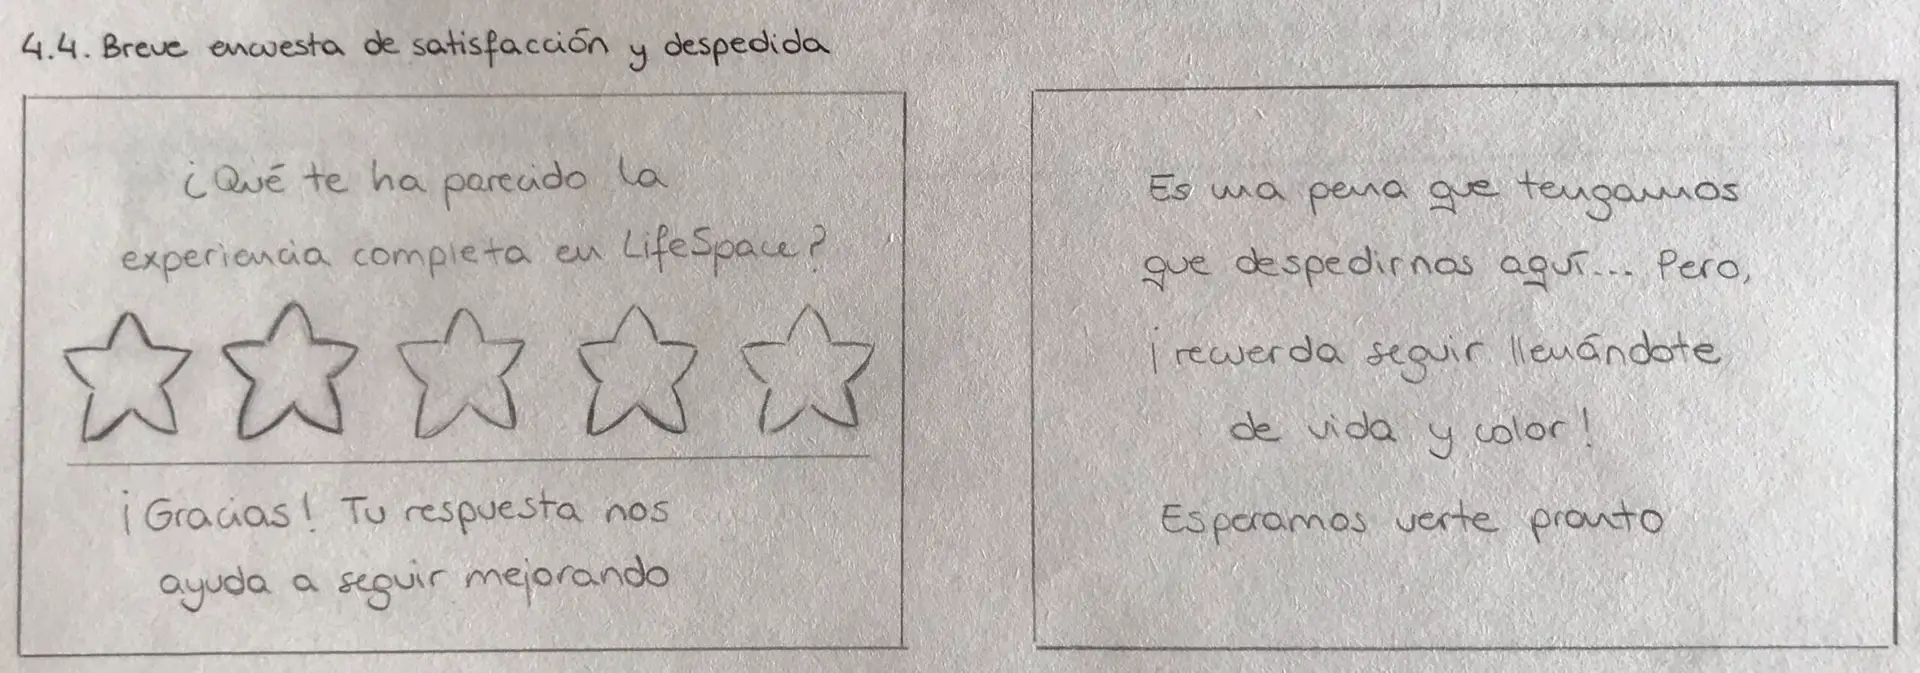 4.4. Breve encuesta de satisfacción y despedida
¿Qué te ha parecido la
experiencia completa en LifeSpace?
¡Gracias! Tu respuesta nos
ayuda a seguir mejorando
Es una pena que tengamos
que despedirnos aquí... Pero,
¡recuerda seguir llenándote
de vida y color!
Esperamos verte pronto